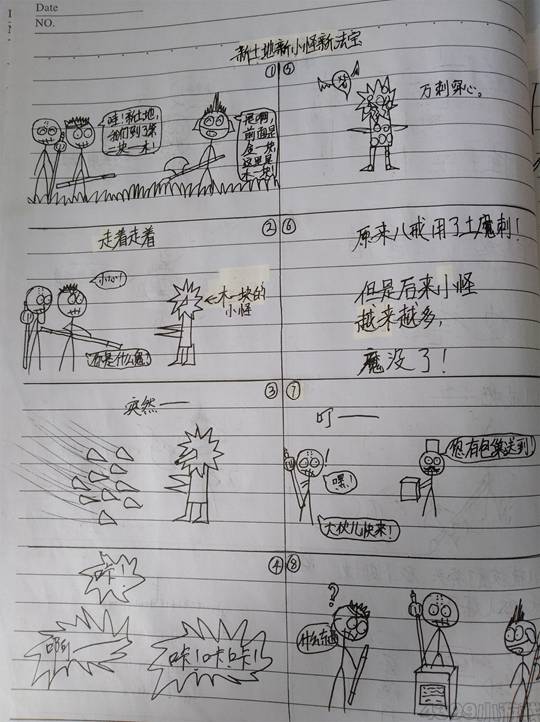 Date
NO.
新土地新小怪新法宝
①
哇！新土地，
我们到了第
一块一木！
是啊，
前面是
金一块，
这里是
木一块！
②
走着走着
小心！
你是什么怪？
木一块的
小怪
③
突然——
④
咔！
啊！
咔！咔咔！
⑤
万刺穿心。
⑥
原来八戒用了土魔刺！
但是后来小怪
越来越多，
魔没了！
⑦
叮——
您有包裹送到！
嘿！
大伙儿快来！
⑧
?
什么东西